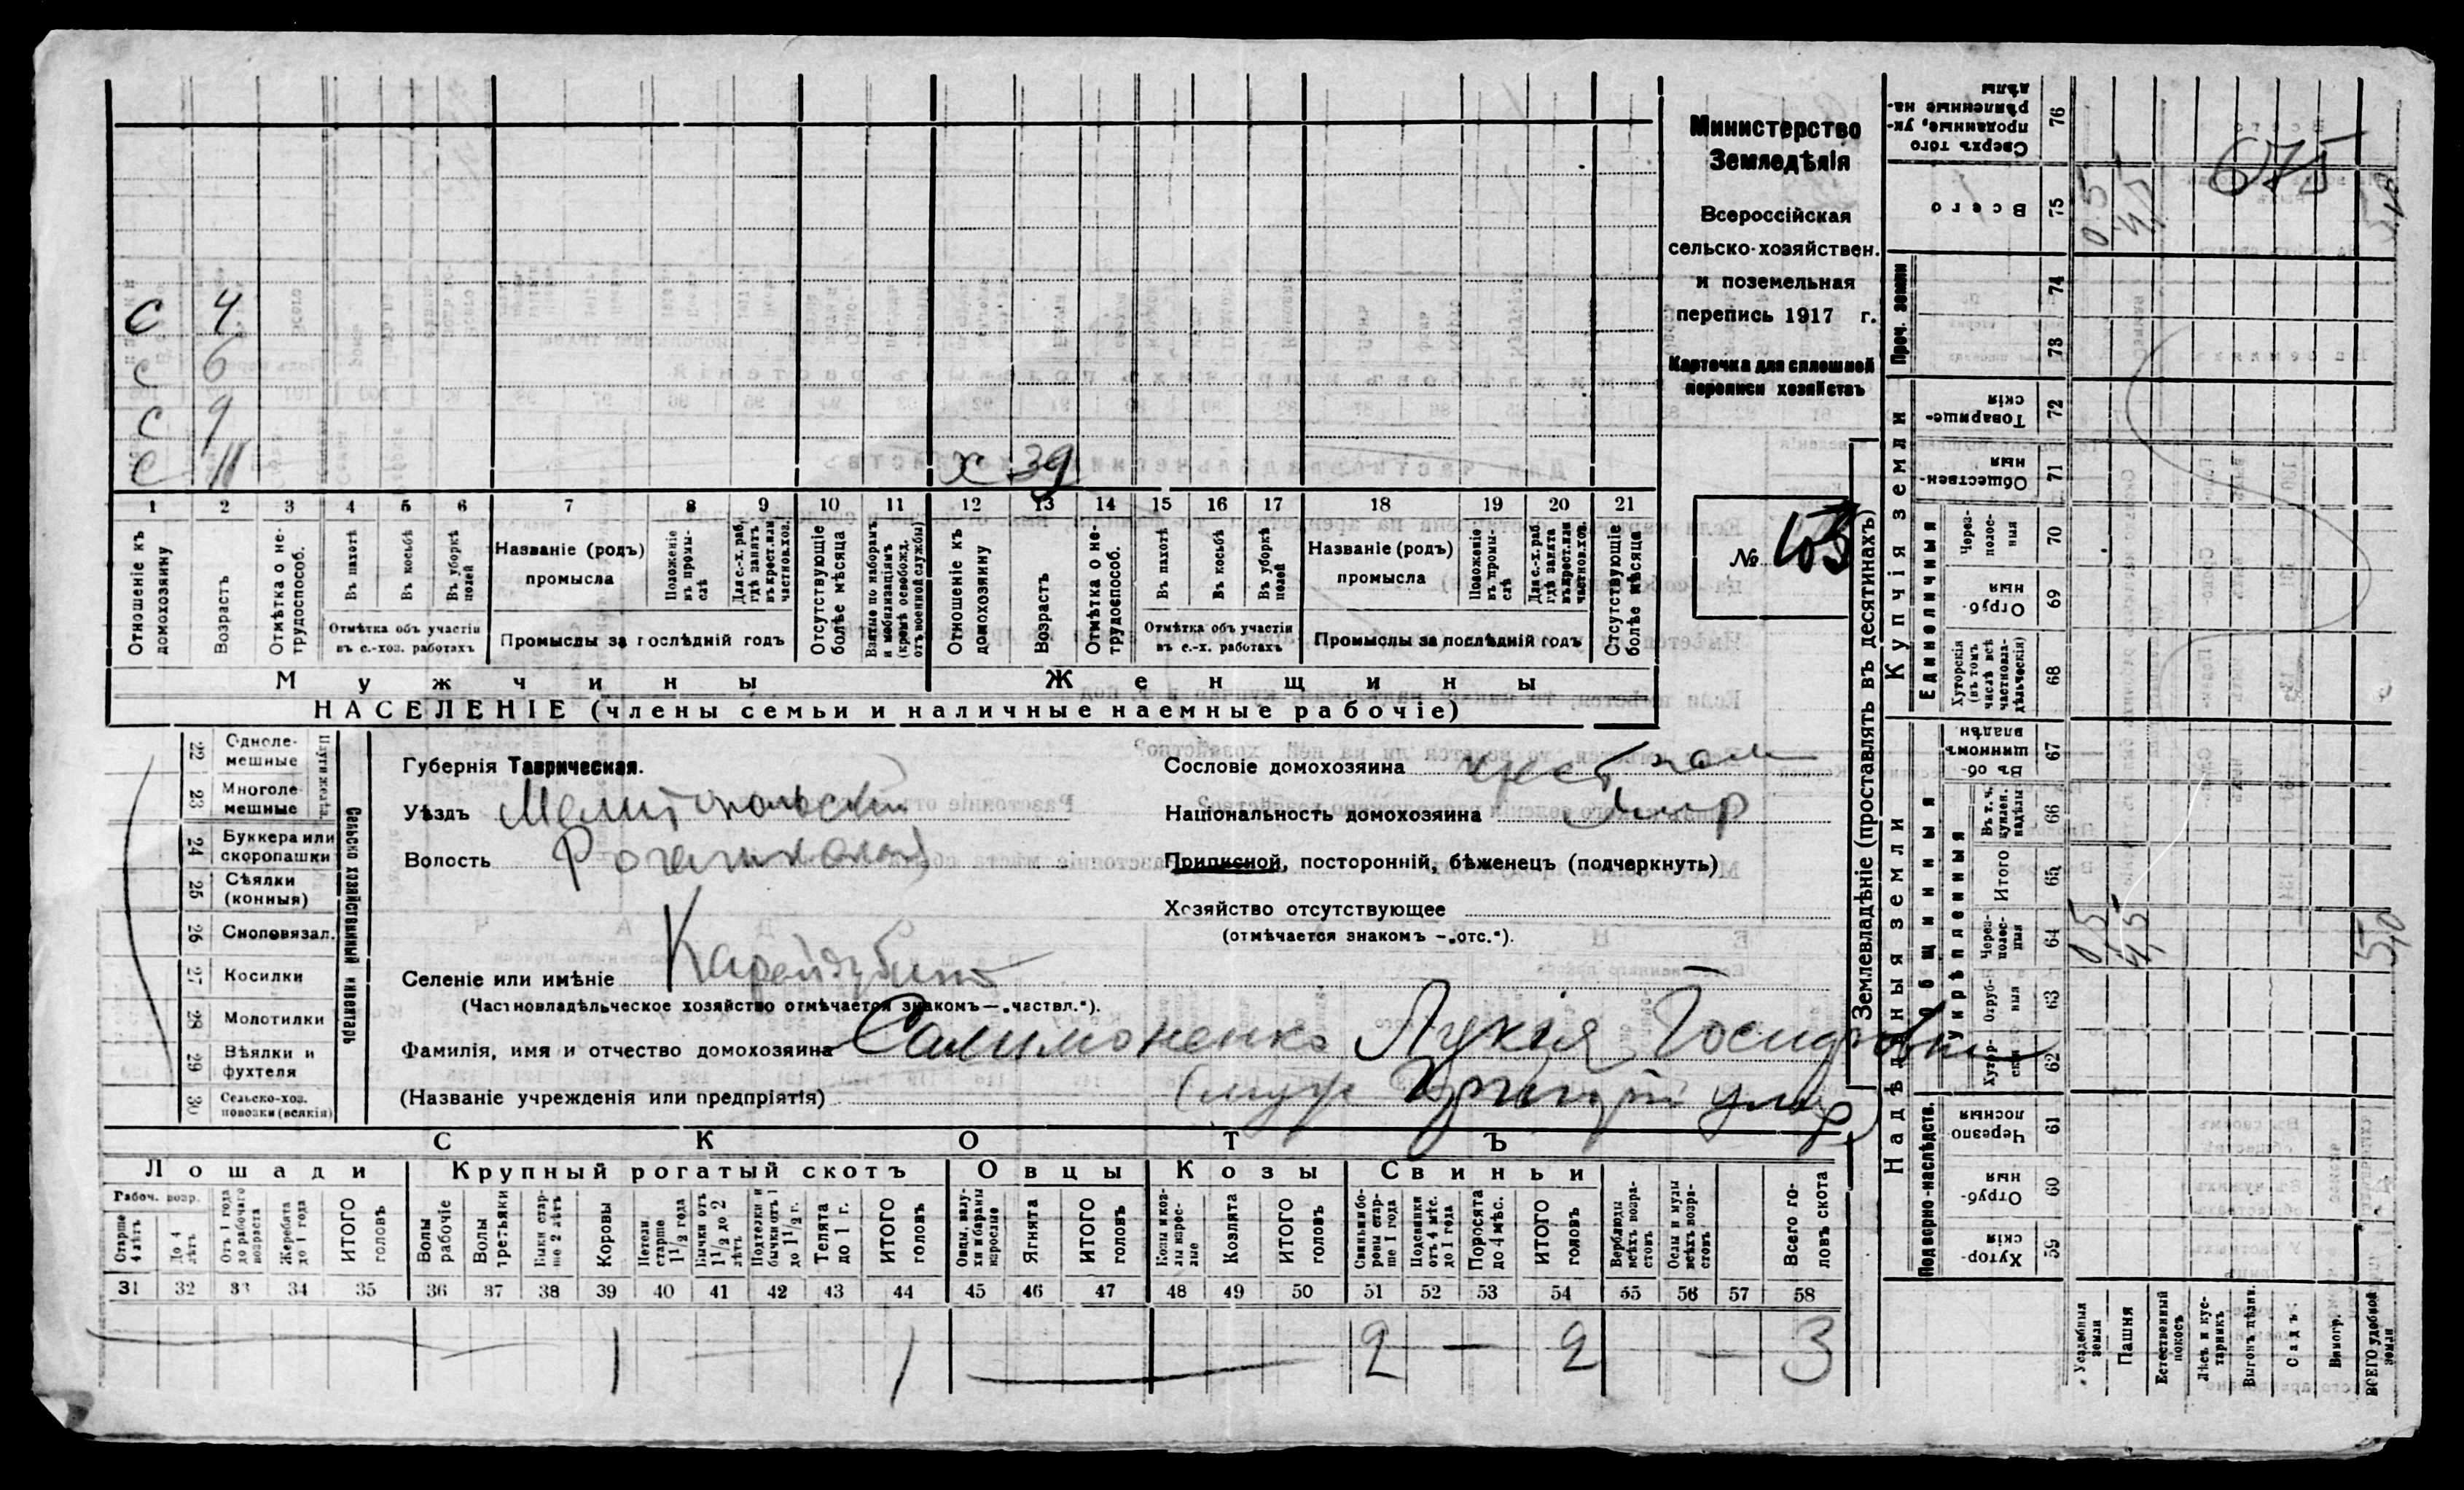 Министерство
Земледѣлія
Всероссійская
сельско-хозяйствен.
и поземельная
перепись 1917 г.
Карточка для сплошной
переписи хозяйствъ
№ 103
с 4
с 6
с 9
с 11
х 39
1 2 3 4 5 6 7 8 9 10 11 12 13 14 15 16 17 18 19 20 21
Отношеніе къ домохозяину
Возрастъ
Отмѣтка о нетрудоспособ.
Въ пахотѣ
Въ косьбѣ
Въ уборкѣ полей
Отмѣтка объ участіи въ с.-хоз. работахъ
Названіе (родъ) промысла
Положеніе въ промыслѣ
Для с.-х. раб. гдѣ занятъ въ крест. или частнов. хоз.
Промыслы за послѣдній годъ
Отсутствующіе болѣе мѣсяца
Взятые по наборамъ и мобилизаціямъ (кромѣ освобожд. отъ военной службы)
Отношеніе къ домохозяину
Возрастъ
Отмѣтка о нетрудоспособ.
Въ пахотѣ
Въ косьбѣ
Въ уборкѣ полей
Отмѣтка объ участіи въ с.-х. работахъ
Названіе (родъ) промысла
Положеніе въ промыслѣ
Для с.-х. раб. гдѣ занята въ крест. или частнов. хоз.
Промыслы за послѣдній годъ
Отсутствующіе болѣе мѣсяца
Мужчины
Женщины
НАСЕЛЕНІЕ (члены семьи и наличные наемные рабочіе)
22 Однолемешные
23 Многолемешные
24 Буккера или скоропашки
25 Сѣялки (конныя)
26 Сноповязал.
27 Косилки
28 Молотилки
29 Вѣялки и фухтеля
30 Сельско-хоз. повозки (всякія)
Плуги желѣзн.
Сельско хозяйственный инвентарь
Губернія Таврическая.
Уѣздъ Мелитопольскій
Волость
Селеніе или имѣніе
(Частновладѣльческое хозяйство отмѣчается знакомъ—„частвл.“).
Фамилія, имя и отчество домохозяина Салимоненко Лукія Іосифовна
(Названіе учрежденія или предпріятія) (мужъ умеръ)
Сословіе домохозяина крест
Національность домохозяина
Приписной, посторонній, бѣженецъ (подчеркнуть)
Хозяйство отсутствующее
(отмѣчается знакомъ —„отс.“).
СКОТЪ
Лошади
Крупный рогатый скотъ
Овцы
Козы
Свиньи
Рабоч. возр.
Старше 4 лѣтъ
До 4 лѣтъ
Отъ 1 года до рабочаго возраста
Жеребята до 1 года
ИТОГО головъ
Волы рабочіе
Волы третьяки
Быки старше 2 лѣтъ
Коровы
Нетели старше 1 1/2 года
Бычки отъ 1 1/2 до 2 лѣтъ
Подтелки и бычки отъ 1 до 1 1/2 г.
Телята до 1 г.
ИТОГО головъ
Овцы, валухи и бараны взрослые
Ягнята
ИТОГО головъ
Козы и козлы взрослые
Козлята
ИТОГО головъ
Свиньи и боровы старше 1 года
Подсвинки отъ 4 мѣс. до 1 года
Поросята до 4 мѣс.
ИТОГО головъ
Верблюды всѣхъ возрастовъ
Ослы и мулы всѣхъ возрастовъ
Всего головъ скота
31 32 33 34 35 36 37 38 39 40 41 42 43 44 45 46 47 48 49 50 51 52 53 54 55 56 57 58
— — 1 — 1 — 2 — 2 — 3
Землевладѣніе (проставлять въ десятинахъ)
Надѣльныя земли
Купчія земли
Проч. земли
Подворно-наслѣдств.
Общинныя
Укрѣпленныя
Единоличныя
59 Хуторскія
60 Отрубныя
61 Черезполосныя
62 Хуторскія
63 Отрубныя
64 Черезполосныя
65 Итого
66 Въ т. ч. купчен. надѣлы
67 Въ общинномъ владѣн.
68 Хуторскія (въ томъ числѣ всѣ частновладѣльческія)
69 Отрубныя
70 Черезполосныя
71 Общественныя
72 Товарищескія
73
74
75 Всего
76 Сверхъ того проданные, укрѣпленные надѣлы
Усадебныя земли
Пашня
Естественный покосъ
Лѣсъ и кустарникъ
Выгонъ цѣлин.
Садъ
Виногр.
ВСЕГО удобной земли
0,5
4,5
5,0
0.5
4,5
675